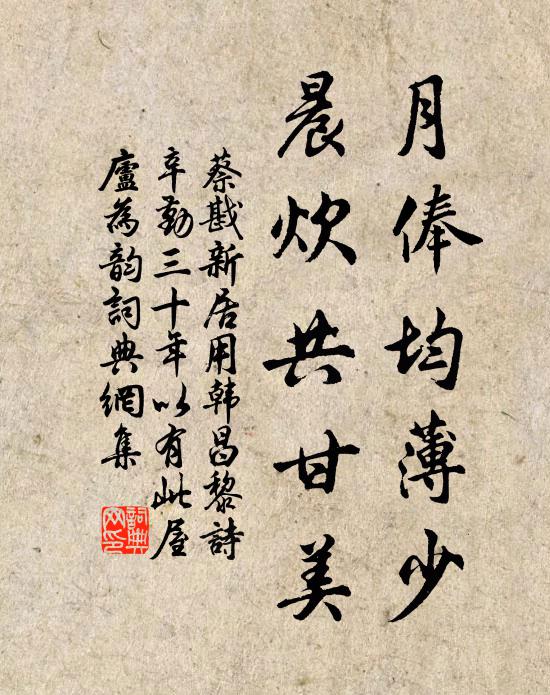 月俸均薄少
晨炊共甘美
蔡戡新居用韩昌黎詩
辛勤三十年以有此屋
廬為韵詞典網集
詞典
网印